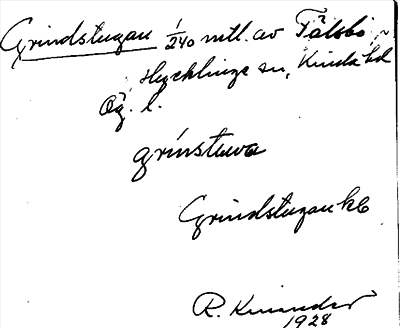 Grindstugan 1/240 mtl. av Fålsbo
Hycklinge sn, Kinda hd
Ög. l.
grínstuwa
Grindstugan kb
R.
1928